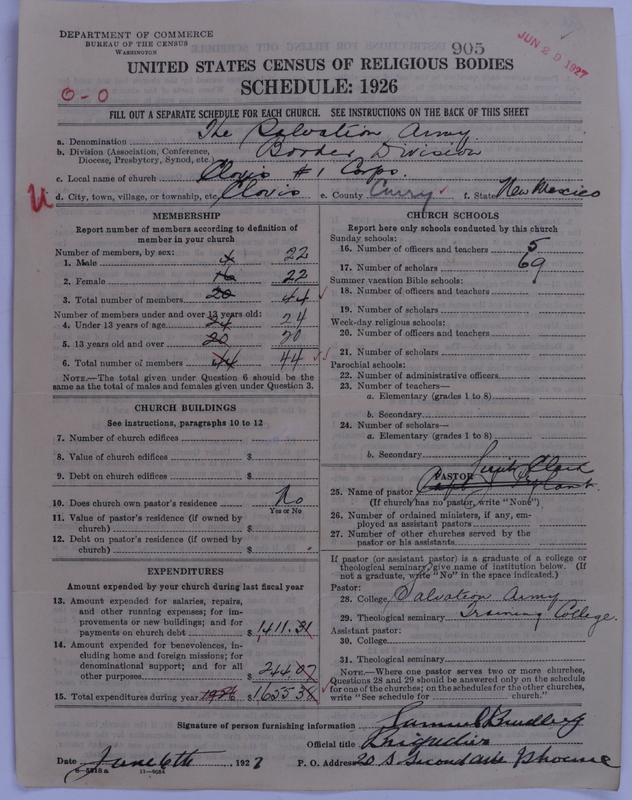 DEPARTMENT OF COMMERCE
BUREAU OF THE CENSUS
WASHINGTON
905
JUN 29 1927
UNITED STATES CENSUS OF RELIGIOUS BODIES
SCHEDULE: 1926
0-0
FILL OUT A SEPARATE SCHEDULE FOR EACH CHURCH. SEE INSTRUCTIONS ON THE BACK OF THIS SHEET
a. Denomination The Salvation Army
b. Division (Association, Conference, Diocese, Presbytery, Synod, etc.) Border Division
c. Local name of church Clovis #1 Corps.
U
d. City, town, village, or township, etc. Clovis e. County Curry f. State New Mexico
MEMBERSHIP
Report number of members according to definition of
member in your church
Number of members, by sex:
1. Male 4 22
2. Female 16 22
3. Total number of members 20 44
Number of members under and over 13 years old:
4. Under 13 years of age 24 24
5. 13 years old and over 20 20
6. Total number of members 44 44
NOTE.—The total given under Question 6 should be
the same as the total of males and females given under Question 3.
CHURCH BUILDINGS
See instructions, paragraphs 10 to 12
7. Number of church edifices
8. Value of church edifices $
9. Debt on church edifices $
10. Does church own pastor's residence No
Yes or No
11. Value of pastor's residence (if owned by
church) $
12. Debt on pastor's residence (if owned by
church) $
EXPENDITURES
Amount expended by your church during last fiscal year
13. Amount expended for salaries, repairs,
and other running expenses; for im-
provements or new buildings; and for
payments on church debt $ 1411.31
14. Amount expended for benevolences, in-
cluding home and foreign missions; for
denominational support; and for all
other purposes $ 244.07
15. Total expenditures during year 1926 $ 1655.38
CHURCH SCHOOLS
Report here only schools conducted by this church
Sunday schools:
16. Number of officers and teachers 5
17. Number of scholars 69
Summer vacation Bible schools:
18. Number of officers and teachers
19. Number of scholars
Week-day religious schools:
20. Number of officers and teachers
21. Number of scholars
Parochial schools:
22. Number of administrative officers
23. Number of teachers—
a. Elementary (grades 1 to 8)
b. Secondary
24. Number of scholars—
a. Elementary (grades 1 to 8)
b. Secondary
PASTOR
Clark
25. Name of pastor Capt
(If church has no pastor, write "None")
26. Number of ordained ministers, if any, em-
ployed as assistant pastors
27. Number of other churches served by the
pastor or his assistants
If pastor (or assistant pastor) is a graduate of a college or
theological seminary give name of institution below. (If
not a graduate, write "No" in the space indicated.)
Pastor:
28. College Salvation Army
29. Theological seminary Training College.
Assistant pastor:
30. College
31. Theological seminary
NOTE.—Where one pastor serves two or more churches,
Questions 28 and 29 should be answered only on the schedule
for one of the churches; on the schedules for the other churches,
write "See schedule for church."
Signature of person furnishing information Samuel
Official title Brigadier
Date June 6th, 1927 P. O. Address 20 S Second Ave Phoenix
8-5518a 11-9084